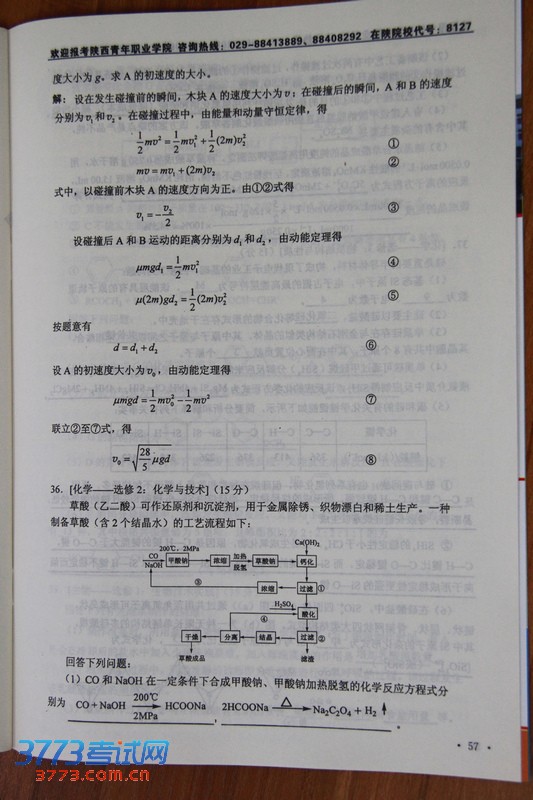 欢迎报考陕西青年职业学院 咨询热线：029-88413889、88408292 在陕院校代号：8127
度大小为 g。求 A 的初速度的大小。
解：设在发生碰撞前的瞬间，木块 A 的速度大小为 v；在碰撞后的瞬间，A 和 B 的速度
分别为 v₁ 和 v₂。在碰撞过程中，由能量和动量守恒定律，得
1/2 mv² = 1/2 mv₁² + 1/2 (2m)v₂² ①
mv = mv₁ + (2m)v₂ ②
式中，以碰撞前木块 A 的速度方向为正。由①②式得
v₁ = - v₂/2 ③
设碰撞后 A 和 B 运动的距离分别为 d₁ 和 d₂，由动能定理得
μmgd₁ = 1/2 mv₁² ④
μ(2m)gd₂ = 1/2 (2m)v₂² ⑤
按题意有
d = d₁ + d₂ ⑥
设 A 的初速度大小为 v₀，由动能定理得
μmgd = 1/2 mv₀² - 1/2 mv² ⑦
联立②至⑦式，得
v₀ = √(28/5 μgd) ⑧
36. [化学——选修 2：化学与技术]（15 分）
草酸（乙二酸）可作还原剂和沉淀剂，用于金属除锈、织物漂白和稀土生产。一种
制备草酸（含 2 个结晶水）的工艺流程如下：
Ca(OH)₂
CO NaOH 200℃，2MPa 甲酸钠 浓缩 加热 脱氢 草酸钠 钙化
③ 浓缩 过滤 ①
H₂SO₄ 酸化
④
干燥 分离 结晶 过滤 ②
草酸成品 滤渣
回答下列问题：
（1）CO 和 NaOH 在一定条件下合成甲酸钠、甲酸钠加热脱氢的化学反应方程式分
别为 CO + NaOH 200℃ 2MPa → HCOONa 2HCOONa △ → Na₂C₂O₄ + H₂↑
· 57 ·
3773考试网
3773.com.cn